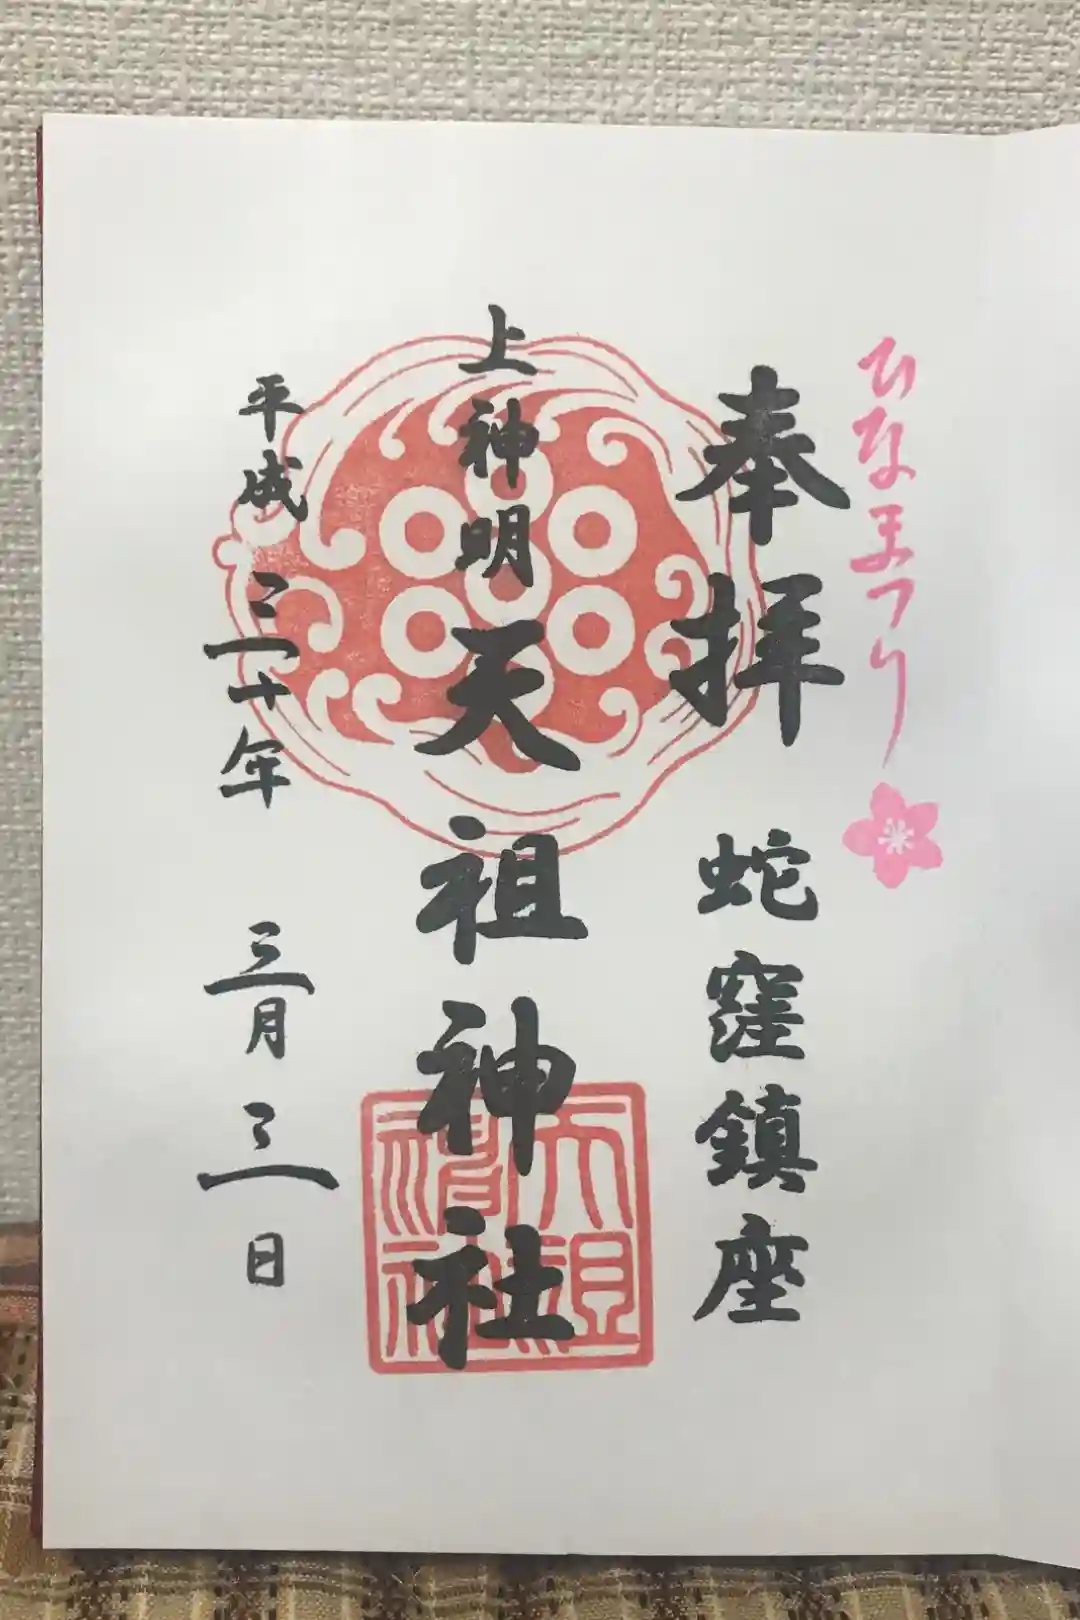 ひなまつり
奉拝 蛇窪鎮座
上神明天祖神社
平成三十年 三月三日